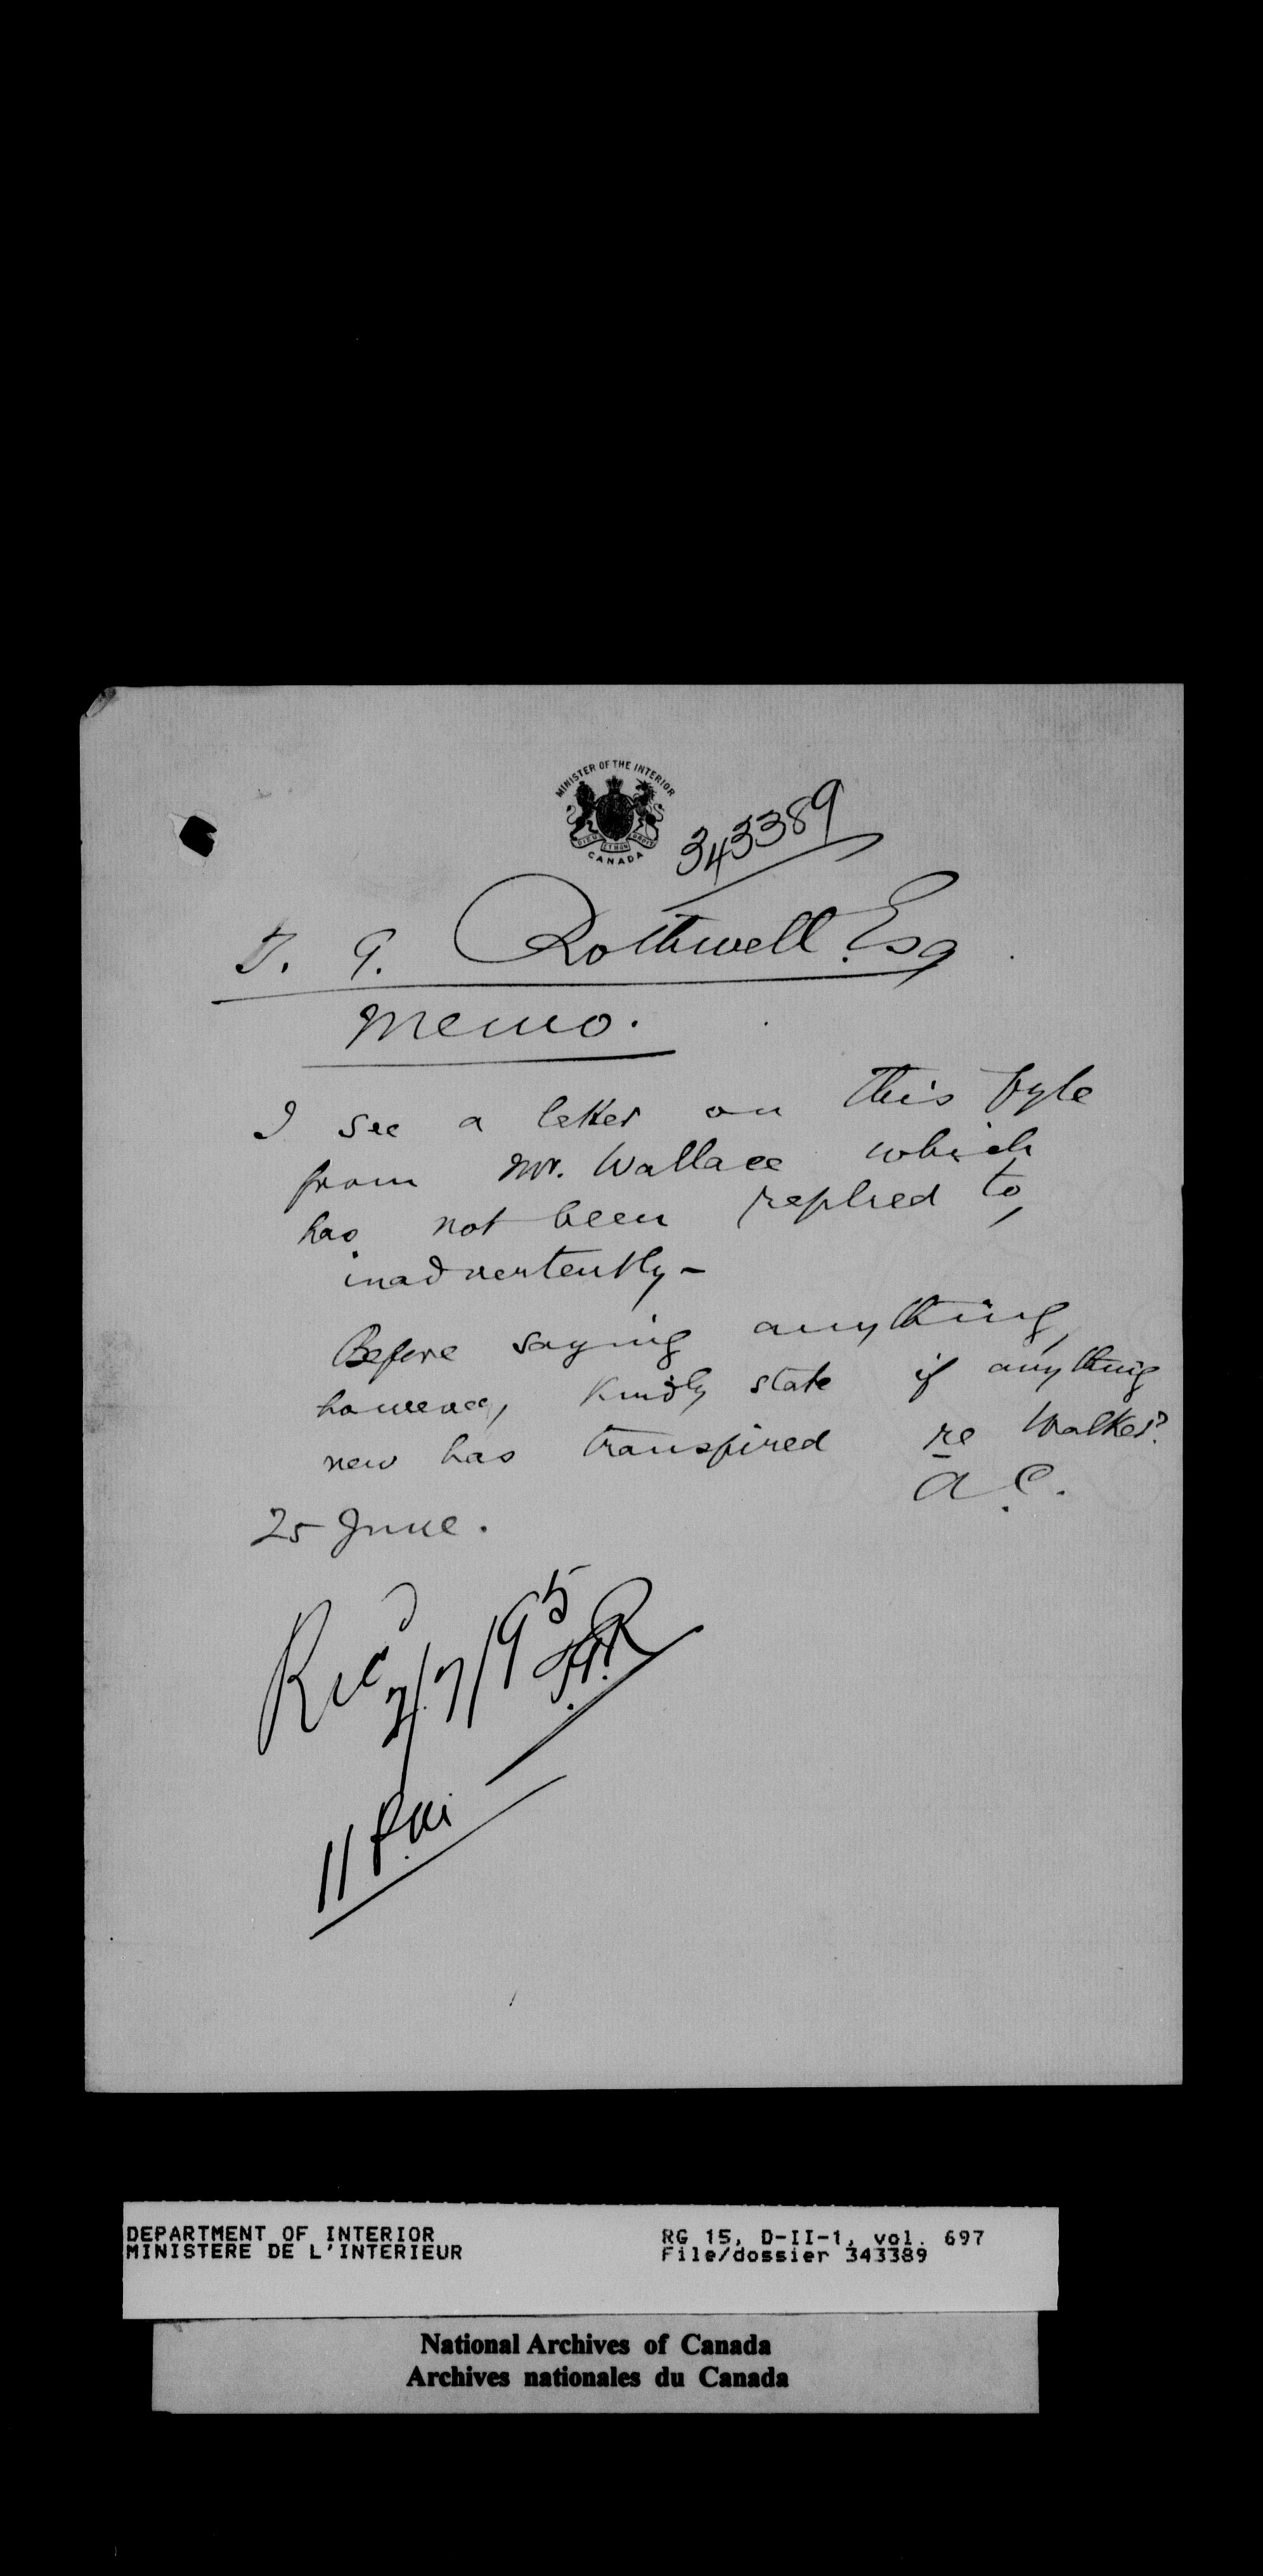 MINISTER OF THE INTERIOR
DIEU ET MON DROIT
CANADA
343389
T. G. Rothwell. Esq
Memo.
I see a letter on this fyle
from Mr. Wallace which
has not been replied to,
inadvertently -
Before saying anything,
however, kindly state if anything
new has transpired re Walker?
A. C.
25 June.
Rec'd 2/7/95
11 P.M.
DEPARTMENT OF INTERIOR
MINISTERE DE L'INTERIEUR
RG 15, D-II-1, vol. 697
File/dossier 343389
National Archives of Canada
Archives nationales du Canada